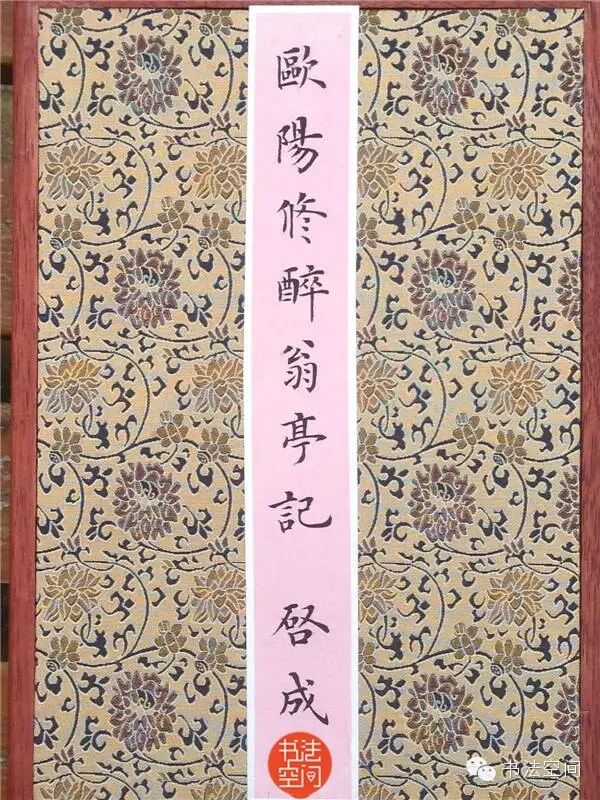 歐陽修醉翁亭記 啓成
书法
空间
书法空间